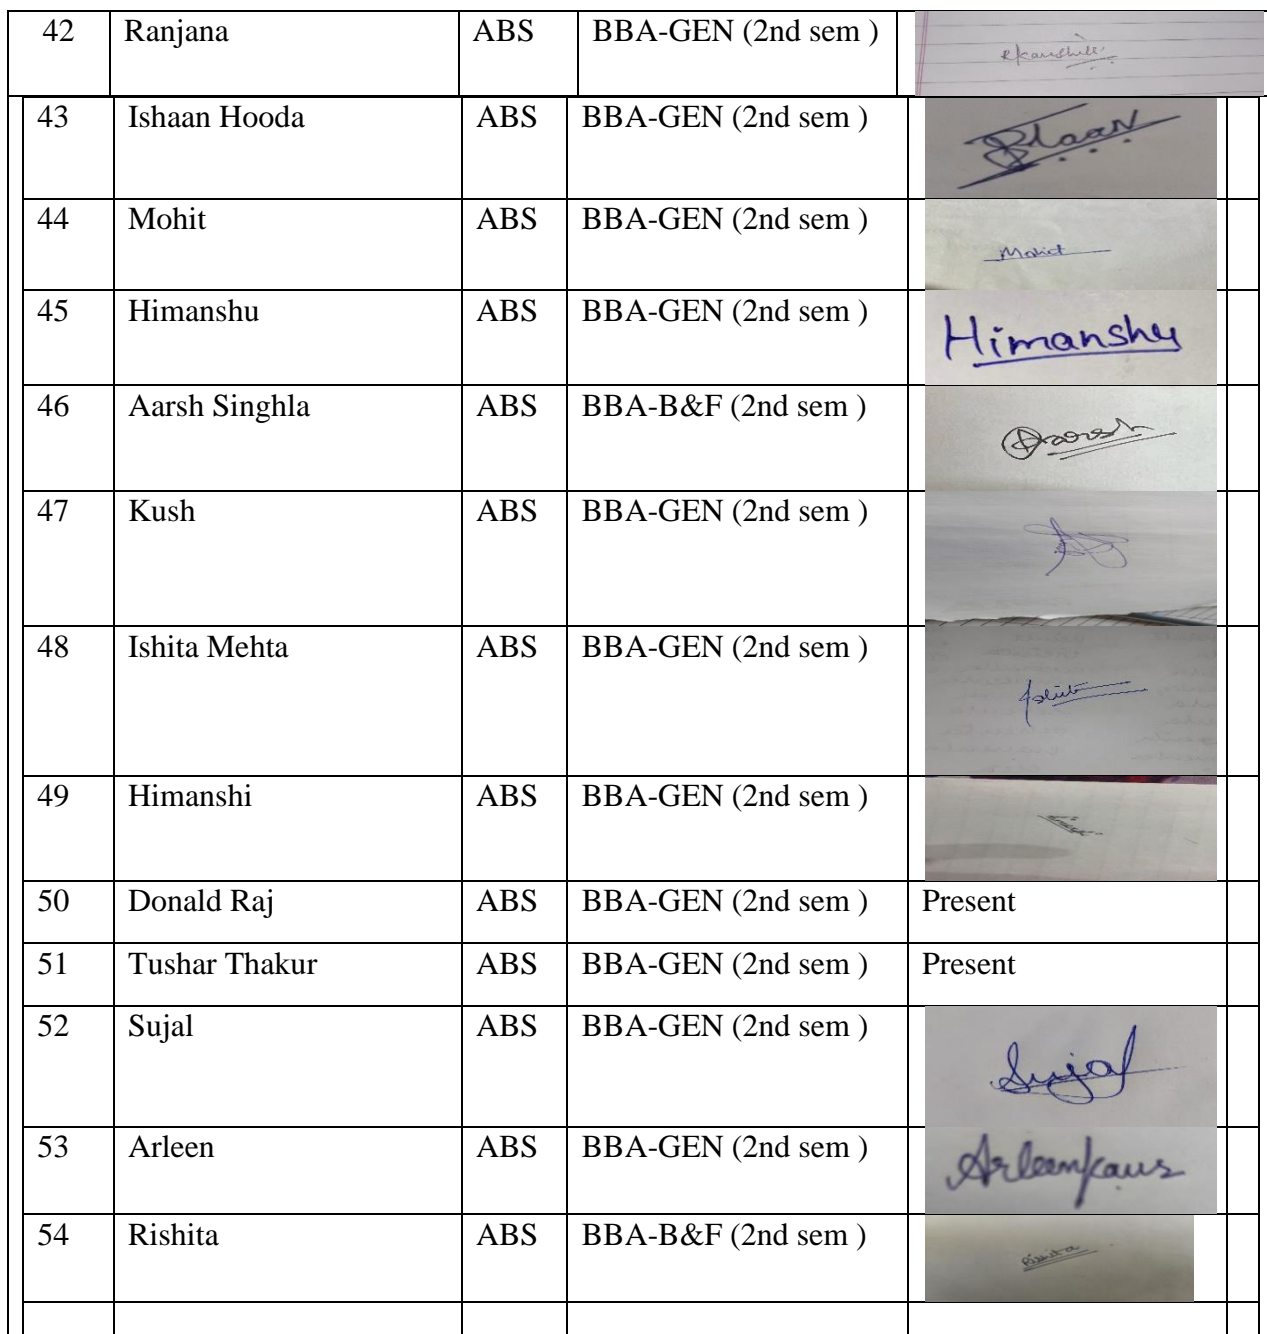 42 Ranjana ABS BBA-GEN (2nd sem )
43 Ishaan Hooda ABS BBA-GEN (2nd sem ) Ishaan
44 Mohit ABS BBA-GEN (2nd sem ) Mohit
45 Himanshu ABS BBA-GEN (2nd sem ) Himanshu
46 Aarsh Singhla ABS BBA-B&F (2nd sem ) Aarsh
47 Kush ABS BBA-GEN (2nd sem )
48 Ishita Mehta ABS BBA-GEN (2nd sem ) Ishita
49 Himanshi ABS BBA-GEN (2nd sem )
50 Donald Raj ABS BBA-GEN (2nd sem ) Present
51 Tushar Thakur ABS BBA-GEN (2nd sem ) Present
52 Sujal ABS BBA-GEN (2nd sem ) Sujal
53 Arleen ABS BBA-GEN (2nd sem ) Arleenkaur
54 Rishita ABS BBA-B&F (2nd sem ) Rishita